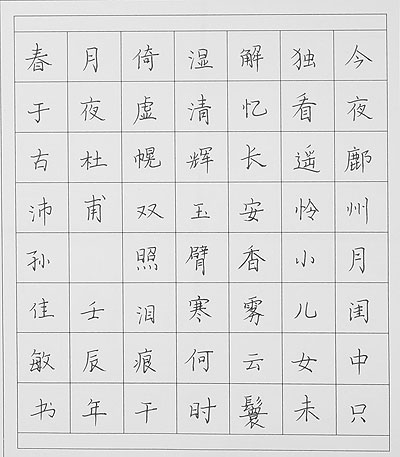 今夜鄜州月闺中只
独看遥怜小儿女未
解忆长安香雾云鬟
湿清辉玉臂寒何时
倚虚幌双照泪痕干
月夜杜甫 壬辰年
春于古沛孙佳敏书